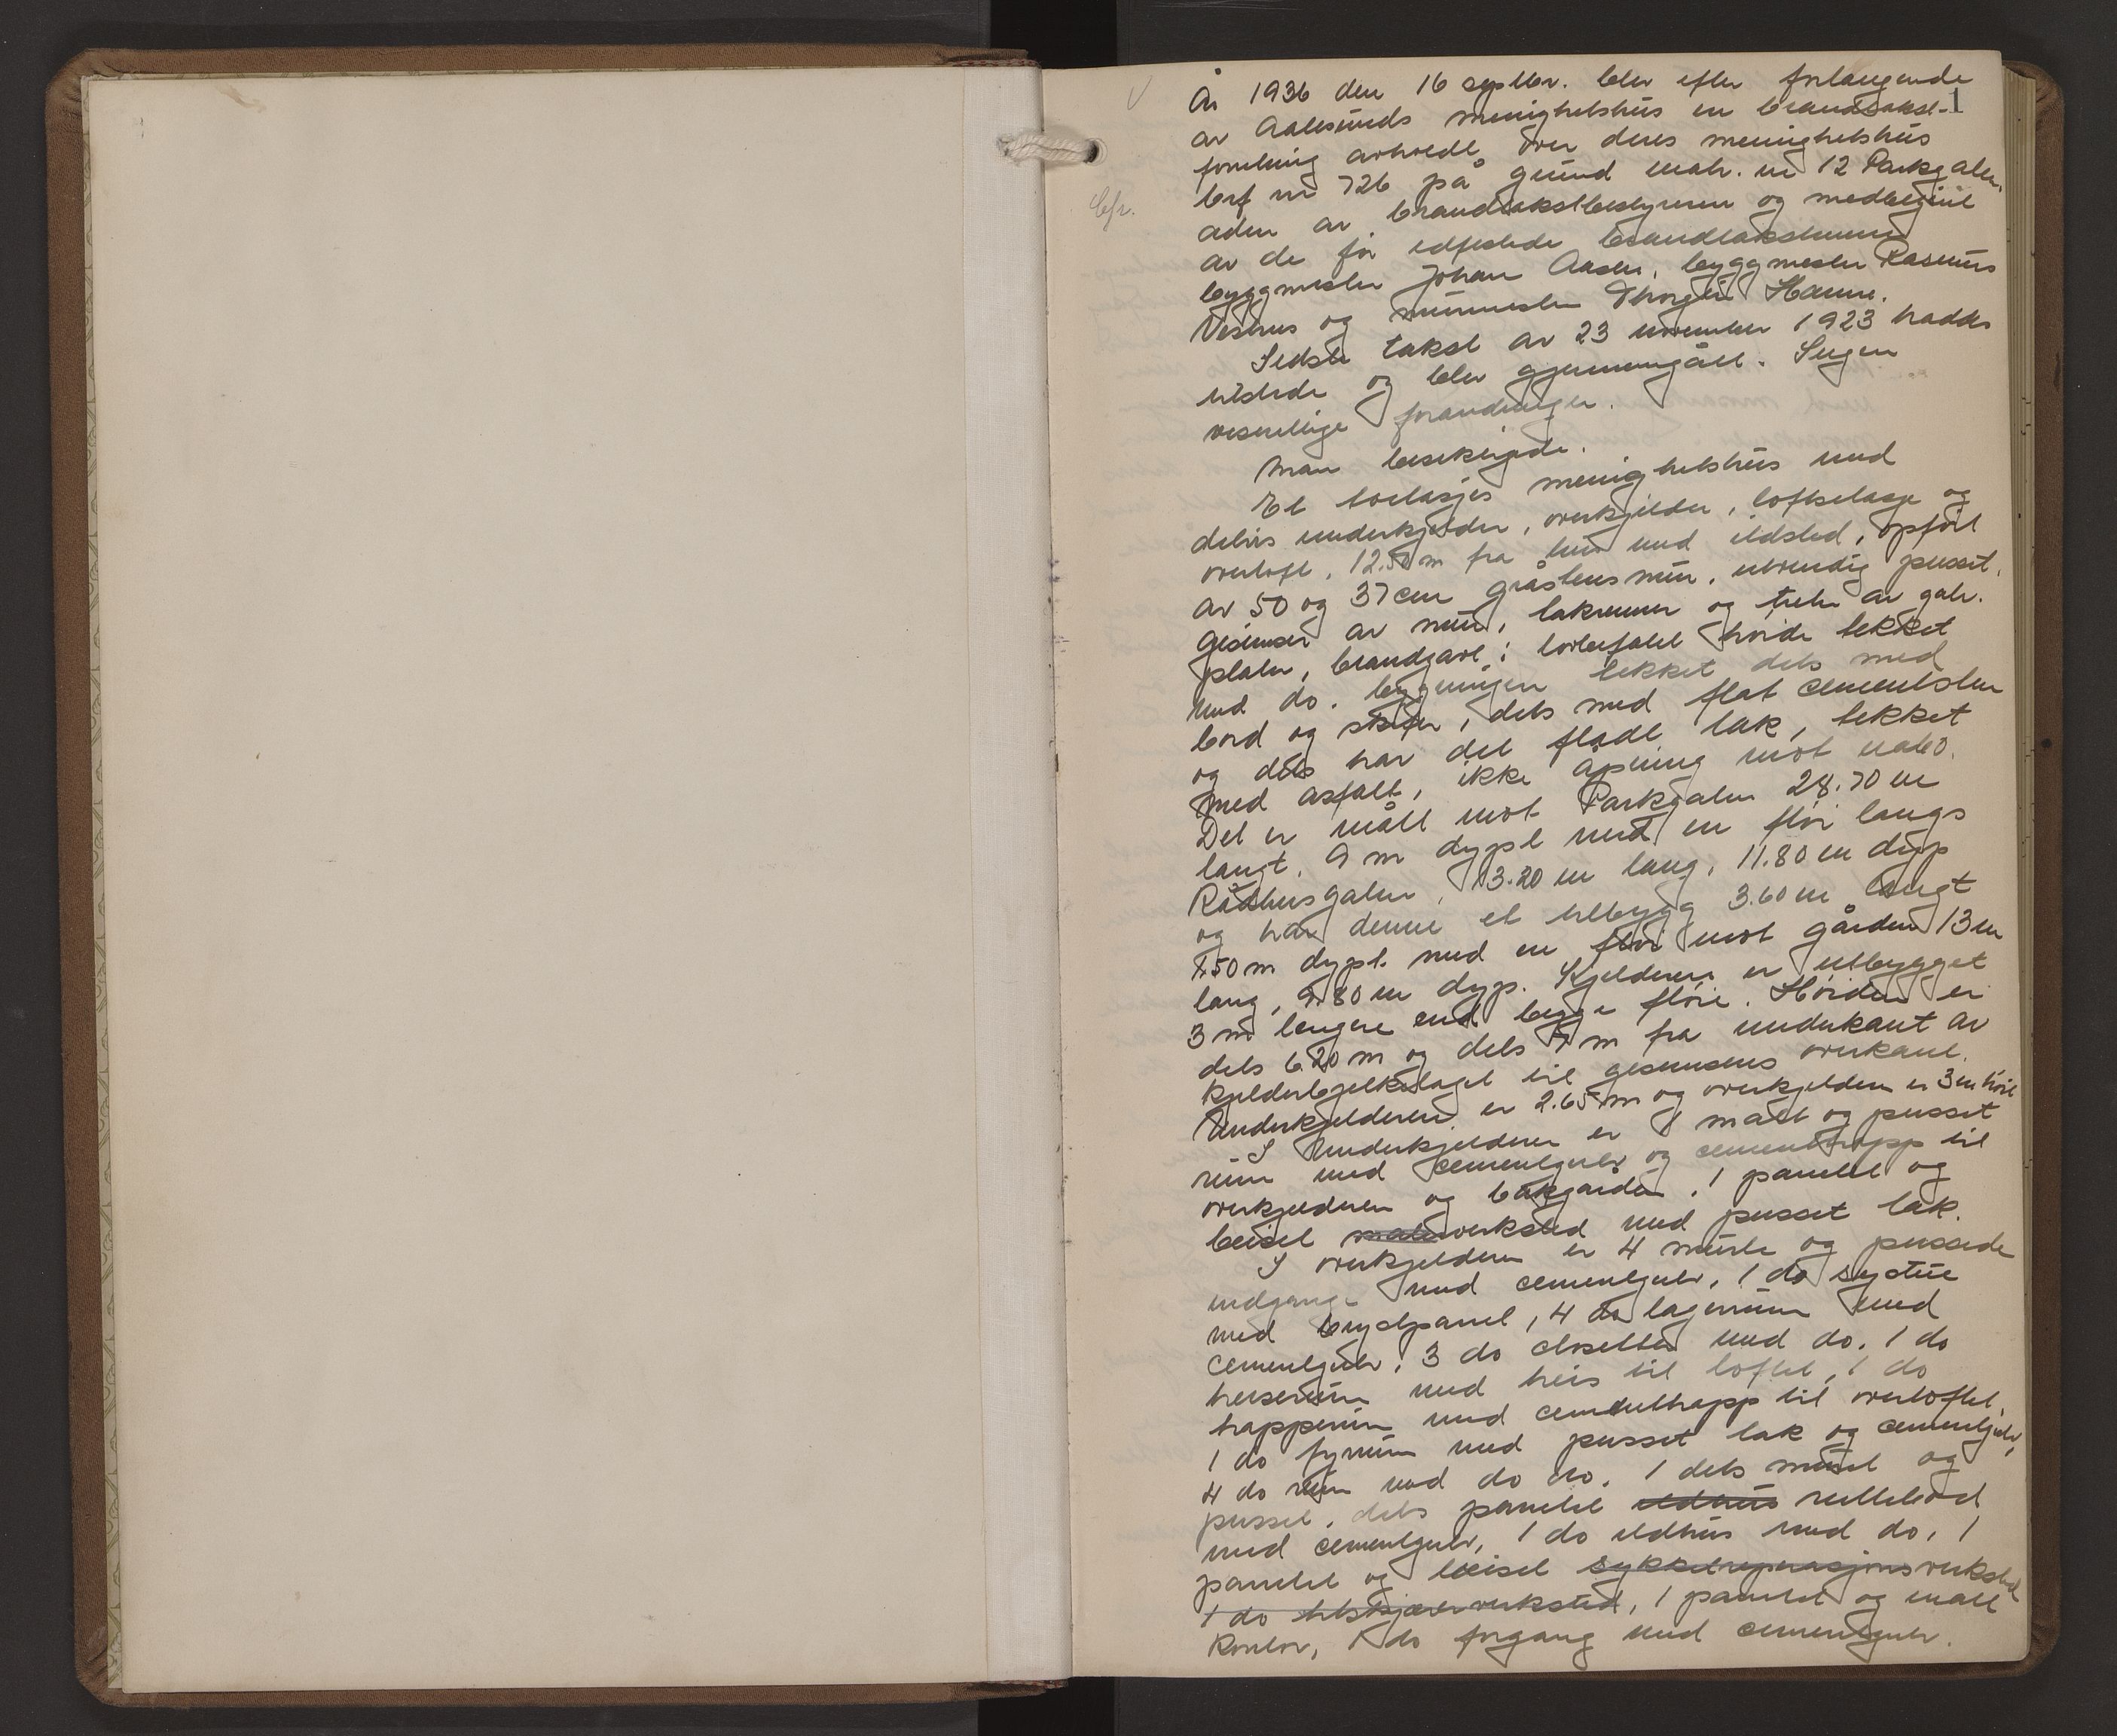 1
År 1936 den 16 septbr. blev efter forlangende
av Aalesunds menighetshus en brandtakst-
forretning avholdt over deres menighetshus
brf nr 726 på grund matr. nr 12 Parkgaten.
Cfr.
av brandtakstbestyreren og
av de før edfestede brandtakstmenn
byggmester Johan Aasen, byggmester Rasmus
Veshus og murmester Thorgeir Hamre.
Sidste takst av 23 november 1923 haddes
tilstede og blev gjennemgått. Ingen
vesentlige forandringer.
Man besiktigede.
Et toetasjes menighetshus med
delvis underkjelder, overkjelder, loftsetage og
overloft, 12.50 m fra hus med ildsted, opført
av 50 og 37 cm gråstensmur, utvendig pusset,
gesimser av mur, takrenner og av galv.
plater, brandgavl i høide tekket
med do. bygningen tekket dels med
bord og skifer, dels med flat cementsten
og dels har det fladt tak, tekket
med asfalt, ikke åpning mot nabo.
Det er målt mot Parkgaten 28.70 m
langt, 9 m dypt med en fløi langs
Rådhusgaten, 13.20 m lang, 11.80 m dyp
og har denne et tilbygg 3.60 m langt
8.50 m dypt. med en fløi mot gården 13 m
lang, 9.80 m dyp. Kjelderen er utbygget
3 m lengere end begge fløie. Høiden er
dels 6.20 m og dels 7 m fra underkant av
kjelderbjelkelaget til gesimsens overkant.
Underkjelderen er 2.65 m og overkjelderen er 3 m høi
I underkjelderen er 1 malt og pusset
rum med cementgulv og cementtrapp til
overkjelderen og bakgården, 1 panelet og
beiset maleverksted med pusset tak.
I overkjelderen er 4 murte og pussede
indgange med cementgulv, 1 do systue
med brystpanel, 4 do lagerrum med
cementgulv, 3 do closetter med do. 1 do
heiserum med heis til loftet, 1 do
trapperum med cementtrapp til overloftet,
1 do fyrrum med pusset tak og cementgulv,
4 do rum med do do. 1 dels murt og
pusset, dels panelet ildhus rullebod
med cementgulv, 1 do ildhus med do, 1
panelet og beiset sykkelreparasjonsverksted
1 do tilskjærerverksted, 1 panelet og malt
kontor, 1 do forgang med cementgulv.